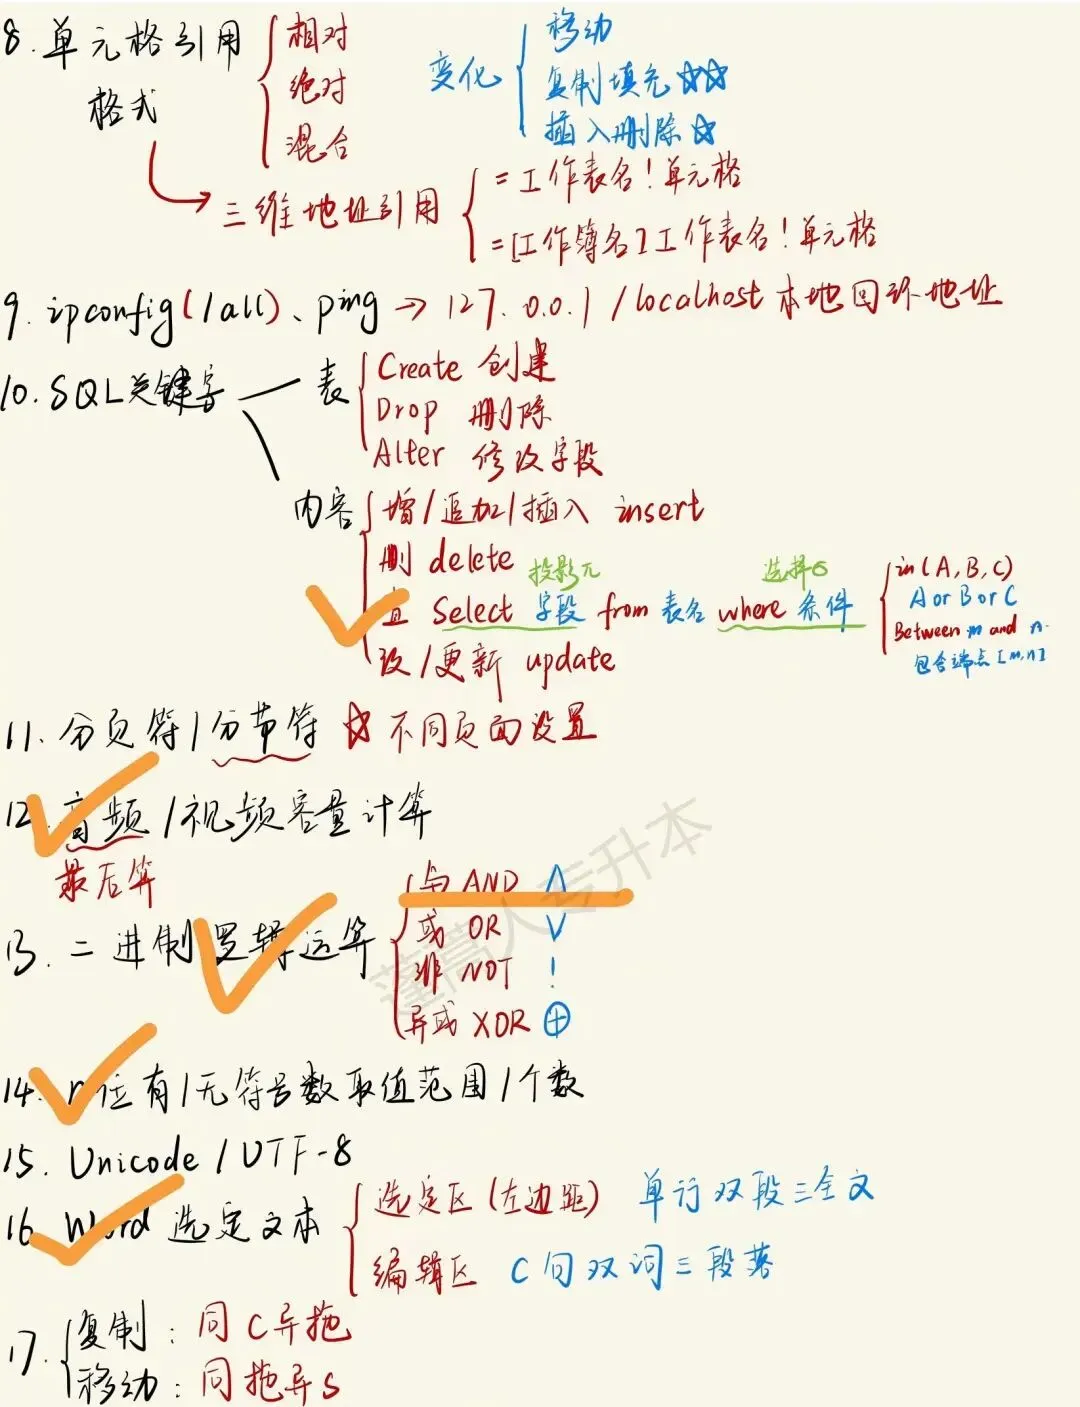 8. 单元格引用 { 相对 变化 { 移动
格式 绝对 复制填充 ☆☆
混合 插入删除 ☆
三维地址引用 { =工作表名!单元格
=[工作簿名]工作表名!单元格
9. ipconfig(/all)、ping → 127.0.0.1 / localhost 本地回环地址
10. SQL关键字 — 表 { Create 创建
Drop 删除
Alter 修改字段
内容 { 增/追加/插入 insert
删 delete
投影π 选择σ
查 Select 字段 from 表名 where 条件 { in(A,B,C)
A or B or C
Between m and n
包含端点[m,n]
改/更新 update
11. 分页符/分节符 ☆ 不同页面设置
12. 音频/视频容量计算
最后算
13. 二进制逻辑运算 { 与 AND ∧
或 OR ∨
非 NOT !
异或 XOR ⊕
蓬蒿人专升本
14. n位有/无符号数取值范围/个数
15. Unicode / UTF-8
16. Word 选定文本 { 选定区(左边距) 单行双段三全文
编辑区 C句双词三段落
17. { 复制:同C异拖
移动:同拖异S